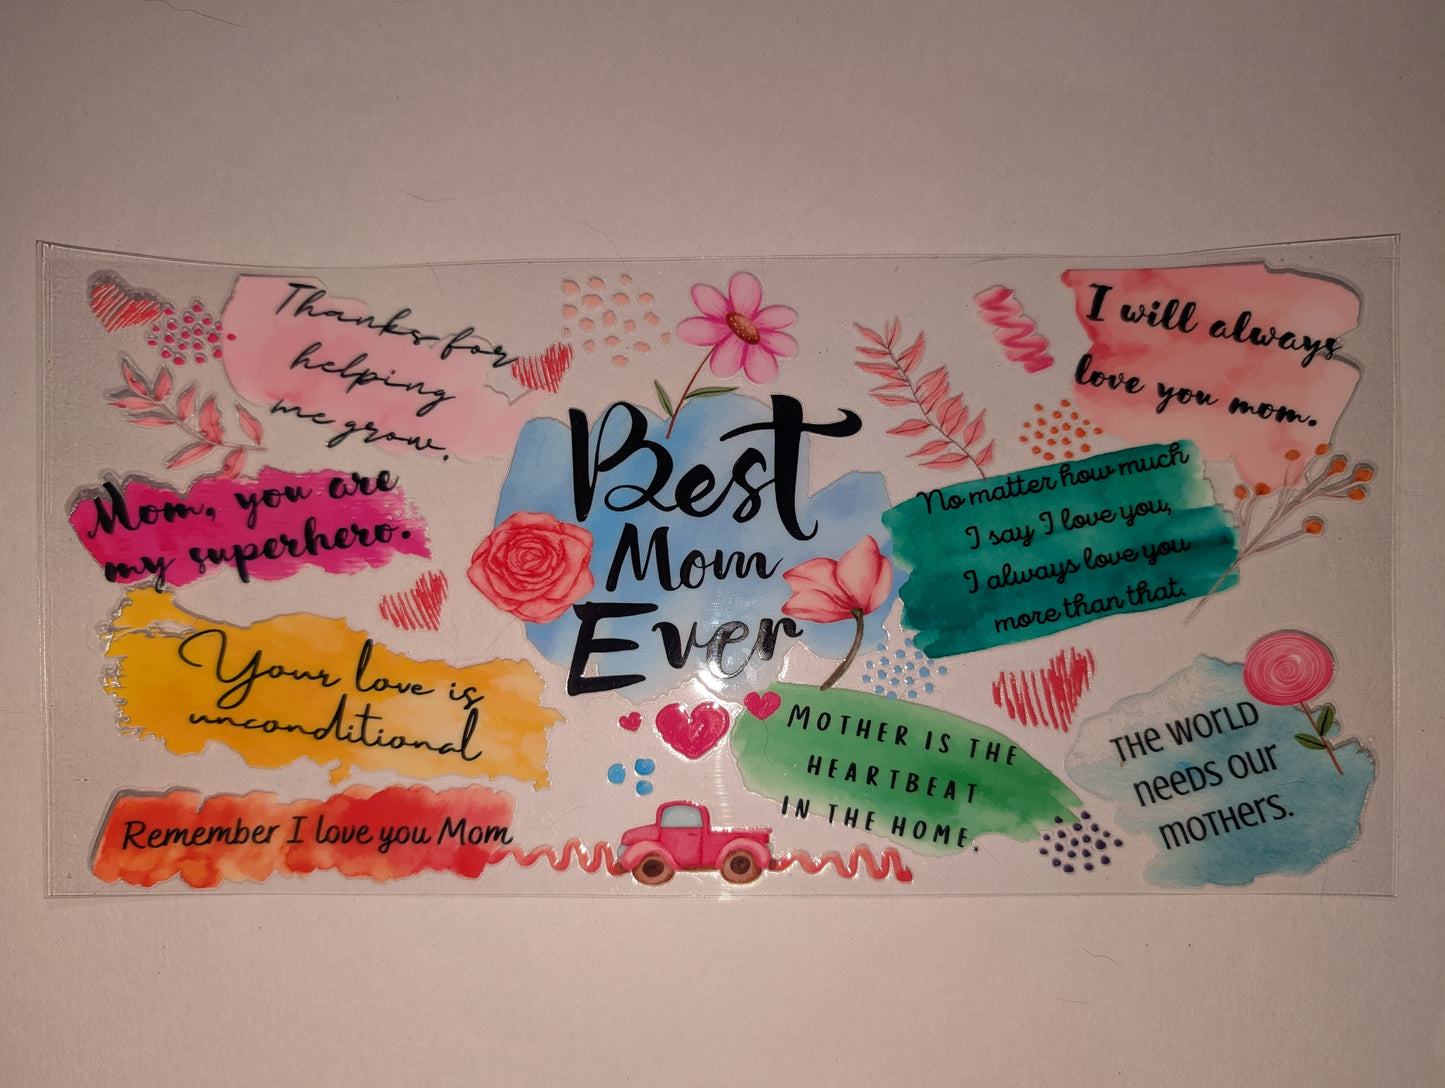 Thanks for
helping
me grow.
Mom, you are
my superhero.
Your love is
unconditional
Remember I love you Mom
Best
Mom
Ever
I will always
love you mom.
No matter how much
I say I love you,
I always love you
more than that.
MOTHER IS THE
HEARTBEAT
IN THE HOME.
THE WORLD
NEEDS OUR
MOTHERS.